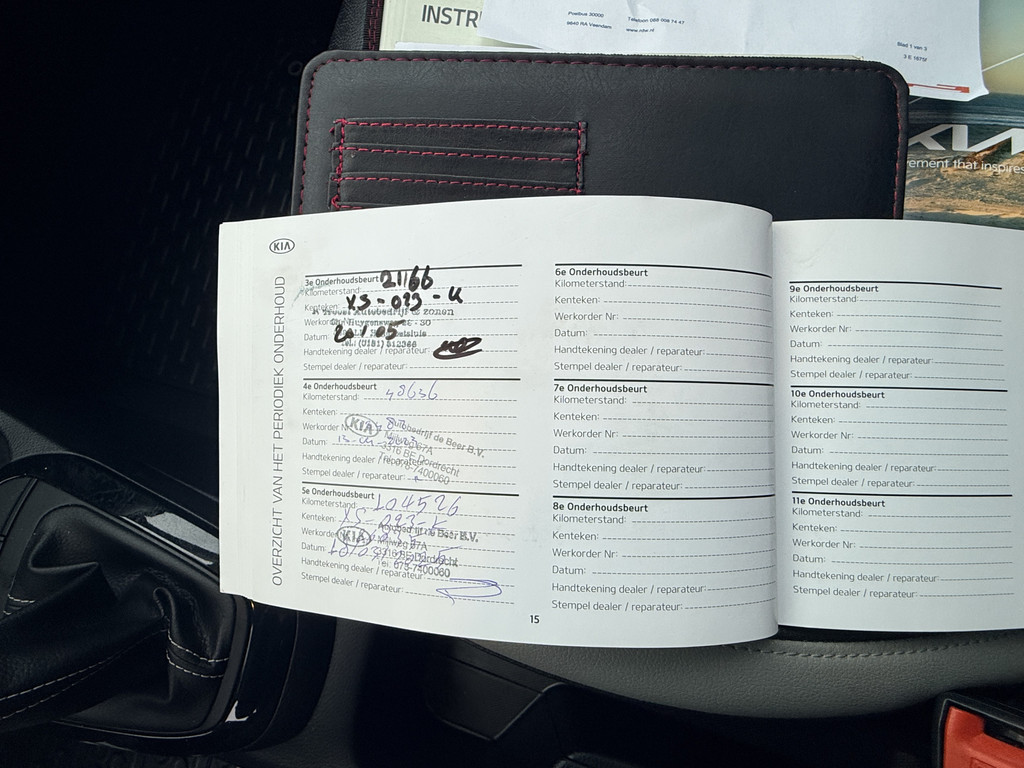 INSTR
Postbus 30000
9640 RA Veendam
Telefoon 088 008 74 47
www.nhr.nl
Blad 1 van 3
KIA
ement that inspires
KIA
OVERZICHT VAN HET PERIODIEK ONDERHOUD
3e Onderhoudsbeurt 21166
Kilometerstand:
Kenteken: XS-093-K
Autobedrijf & zonen
Werkorder
Datum:
Tel.: (0181) 312366
Handtekening dealer / reparateur:
Stempel dealer / reparateur:
4e Onderhoudsbeurt
Kilometerstand: 48636
Kenteken:
Werkorder Nr:
KIA Autobedrijf de Beer B.V.
Mijlweg 67A
Datum:
3316 BE Dordrecht
Handtekening dealer / reparateur:
Tel. 078-7400060
Stempel dealer / reparateur:
5e Onderhoudsbeurt
Kilometerstand: 104526
Kenteken: XS-093-K
Werkorder
KIA Autobedrijf de Beer B.V.
Mijlweg 67A
Datum:
3316 BE Dordrecht
Handtekening dealer / reparateur:
Tel. 078-7400060
Stempel dealer / reparateur:
15
6e Onderhoudsbeurt
Kilometerstand:
Kenteken:
Werkorder Nr:
Datum:
Handtekening dealer / reparateur:
Stempel dealer / reparateur:
7e Onderhoudsbeurt
Kilometerstand:
Kenteken:
Werkorder Nr:
Datum:
Handtekening dealer / reparateur:
Stempel dealer / reparateur:
8e Onderhoudsbeurt
Kilometerstand:
Kenteken:
Werkorder Nr:
Datum:
Handtekening dealer / reparateur:
Stempel dealer / reparateur:
9e Onderhoudsbeurt
Kilometerstand:
Kenteken:
Werkorder Nr:
Datum:
Handtekening dealer / reparateur:
Stempel dealer / reparateur:
10e Onderhoudsbeurt
Kilometerstand:
Kenteken:
Werkorder Nr:
Datum:
Handtekening dealer / reparateur:
Stempel dealer / reparateur:
11e Onderhoudsbeurt
Kilometerstand:
Kenteken:
Werkorder Nr:
Datum:
Handtekening dealer / reparateur:
Stempel dealer / reparateur: